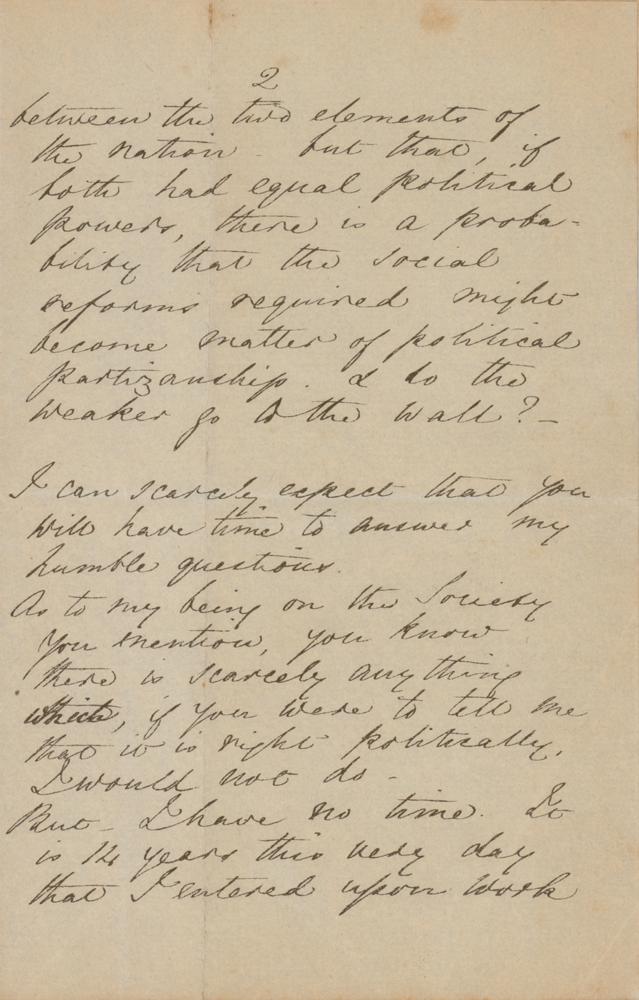 2
between the two elements of
the nation - but that, if
both had equal political
powers, there is a proba-
bility that the social
reforms required might
become matter of political
partizanship. & so the
weaker go to the wall? -
I can scarcely expect that you
will have time to answer my
humble questions.
As to my being on the Society
you mention, you know
there is scarcely any thing
which, if you were to tell me
that it is right politically,
I would not do -
But - I have no time. It
is 14 years this very day
that I entered upon work